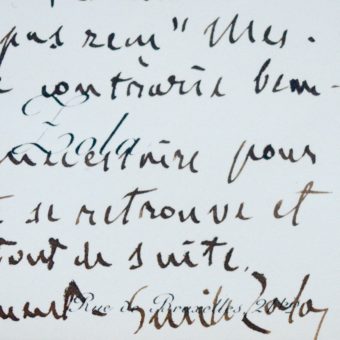 pas reçu" Mes-
contrarie beau-
Zola
nécessaire pour
se retrouve et
tout de suite.
Rue de Bruxelles, 21 bis
Emile Zola